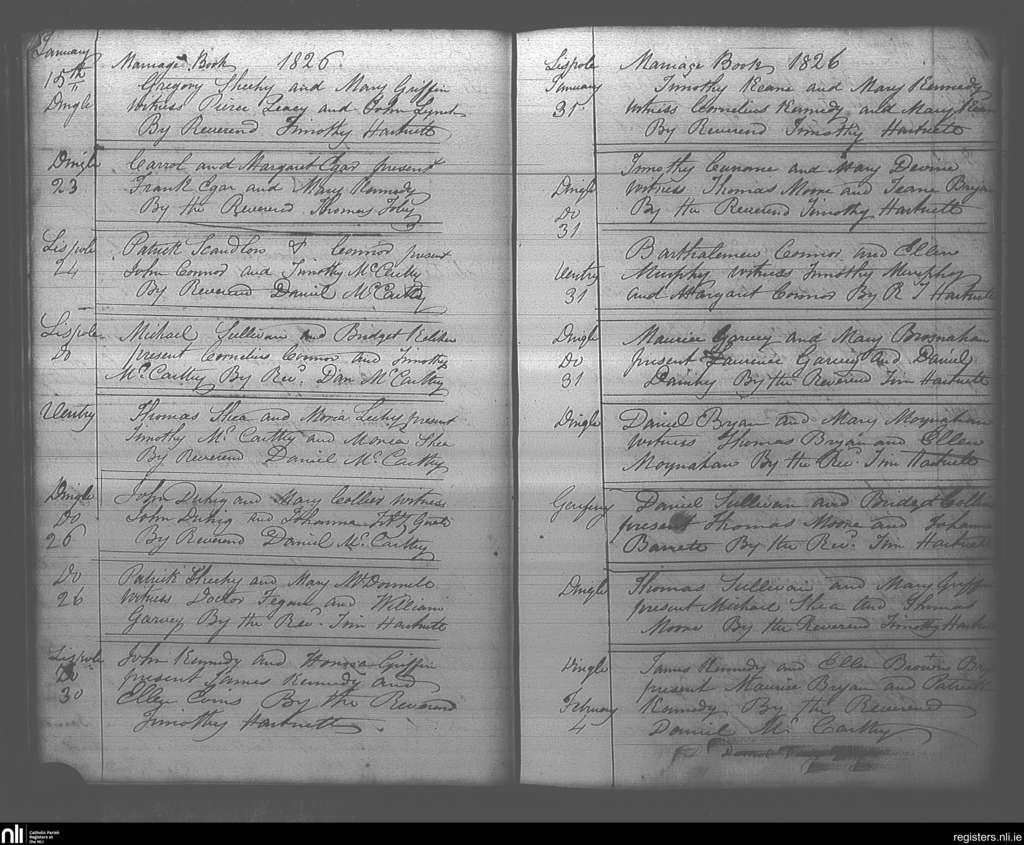 January
15th
Dingle
Marriage Book 1826
Gregory Sheehy and Mary Griffin
witness Pierce Leacy and John Lynch
By Reverend Timothy Hartnett
Dingle
23
Carrol and Margaret Egar present
Frank Egar and Mary Kennedy
By the Reverend Thomas Foley
Lispole
24
Patrick Scandlon & Connor present
John Connor and Timothy McCarthy
By Reverend Daniel McCarthy
Lispole
Do
Michael Sullivan and Bridget Keliher
present Cornelius Connor and Timothy
McCarthy By Revd. Dan McCarthy
Ventry
Thomas Shea and Moria present
Timothy McCarthy and Moriea Shea
By Reverend Daniel McCarthy
Dingle
Do
26
John Duhig and Mary Collier witness
John Duhig and Johanna
By Reverend Daniel McCarthy
Do
26
Patrick Sheehy and Mary McDonnele
witness Doctor Fegan and William
Garvey By the Revd. Tim Hartnett
Lispole
Do
30
John Kennedy and Honora Griffin
present James Kennedy and
Ellen Evins By the Reverend
Timothy Hartnett
Lispole
January
31
Marriage Book 1826
Timothy Keane and Mary Kennedy
witness Cornelius Kennedy and Mary
By Reverend Timothy Hartnett
Dingle
Do
31
Timothy Cunome and Mary Devine
witness Thomas Moore and Jeane Bryan
By the Reverend Timothy Hartnett
Ventry
31
Bartholamew Connor and Ellen
Murphy witness Timothy Murphy
and Margaret Connor By R T Hartnett
Dingle
Do
31
Maurice Garvey and Mary Brosnahan
present Laurence Garvey and Daniel
By the Reverend Tim Hartnett
Dingle
Daniel Bryan and Mary Moynahan
witness Thomas Bryan and Ellen
Moynahan By the Revd. Tim Hartnett
Daniel Sullivan and Bridget
present Thomas Moore and
Barrett By the Revd. Tim Hartnett
Dingle
Thomas Sullivan and Mary Griffin
present Michael Shea and Thomas
Moore By the Reverend Timothy
Dingle
February
4
James Kennedy and Ellen Brown
present Maurice Bryan and Patrick
Kennedy By the Reverend
Daniel McCarthy
nli
Catholic Parish
Registers at
the NLI
registers.nli.ie